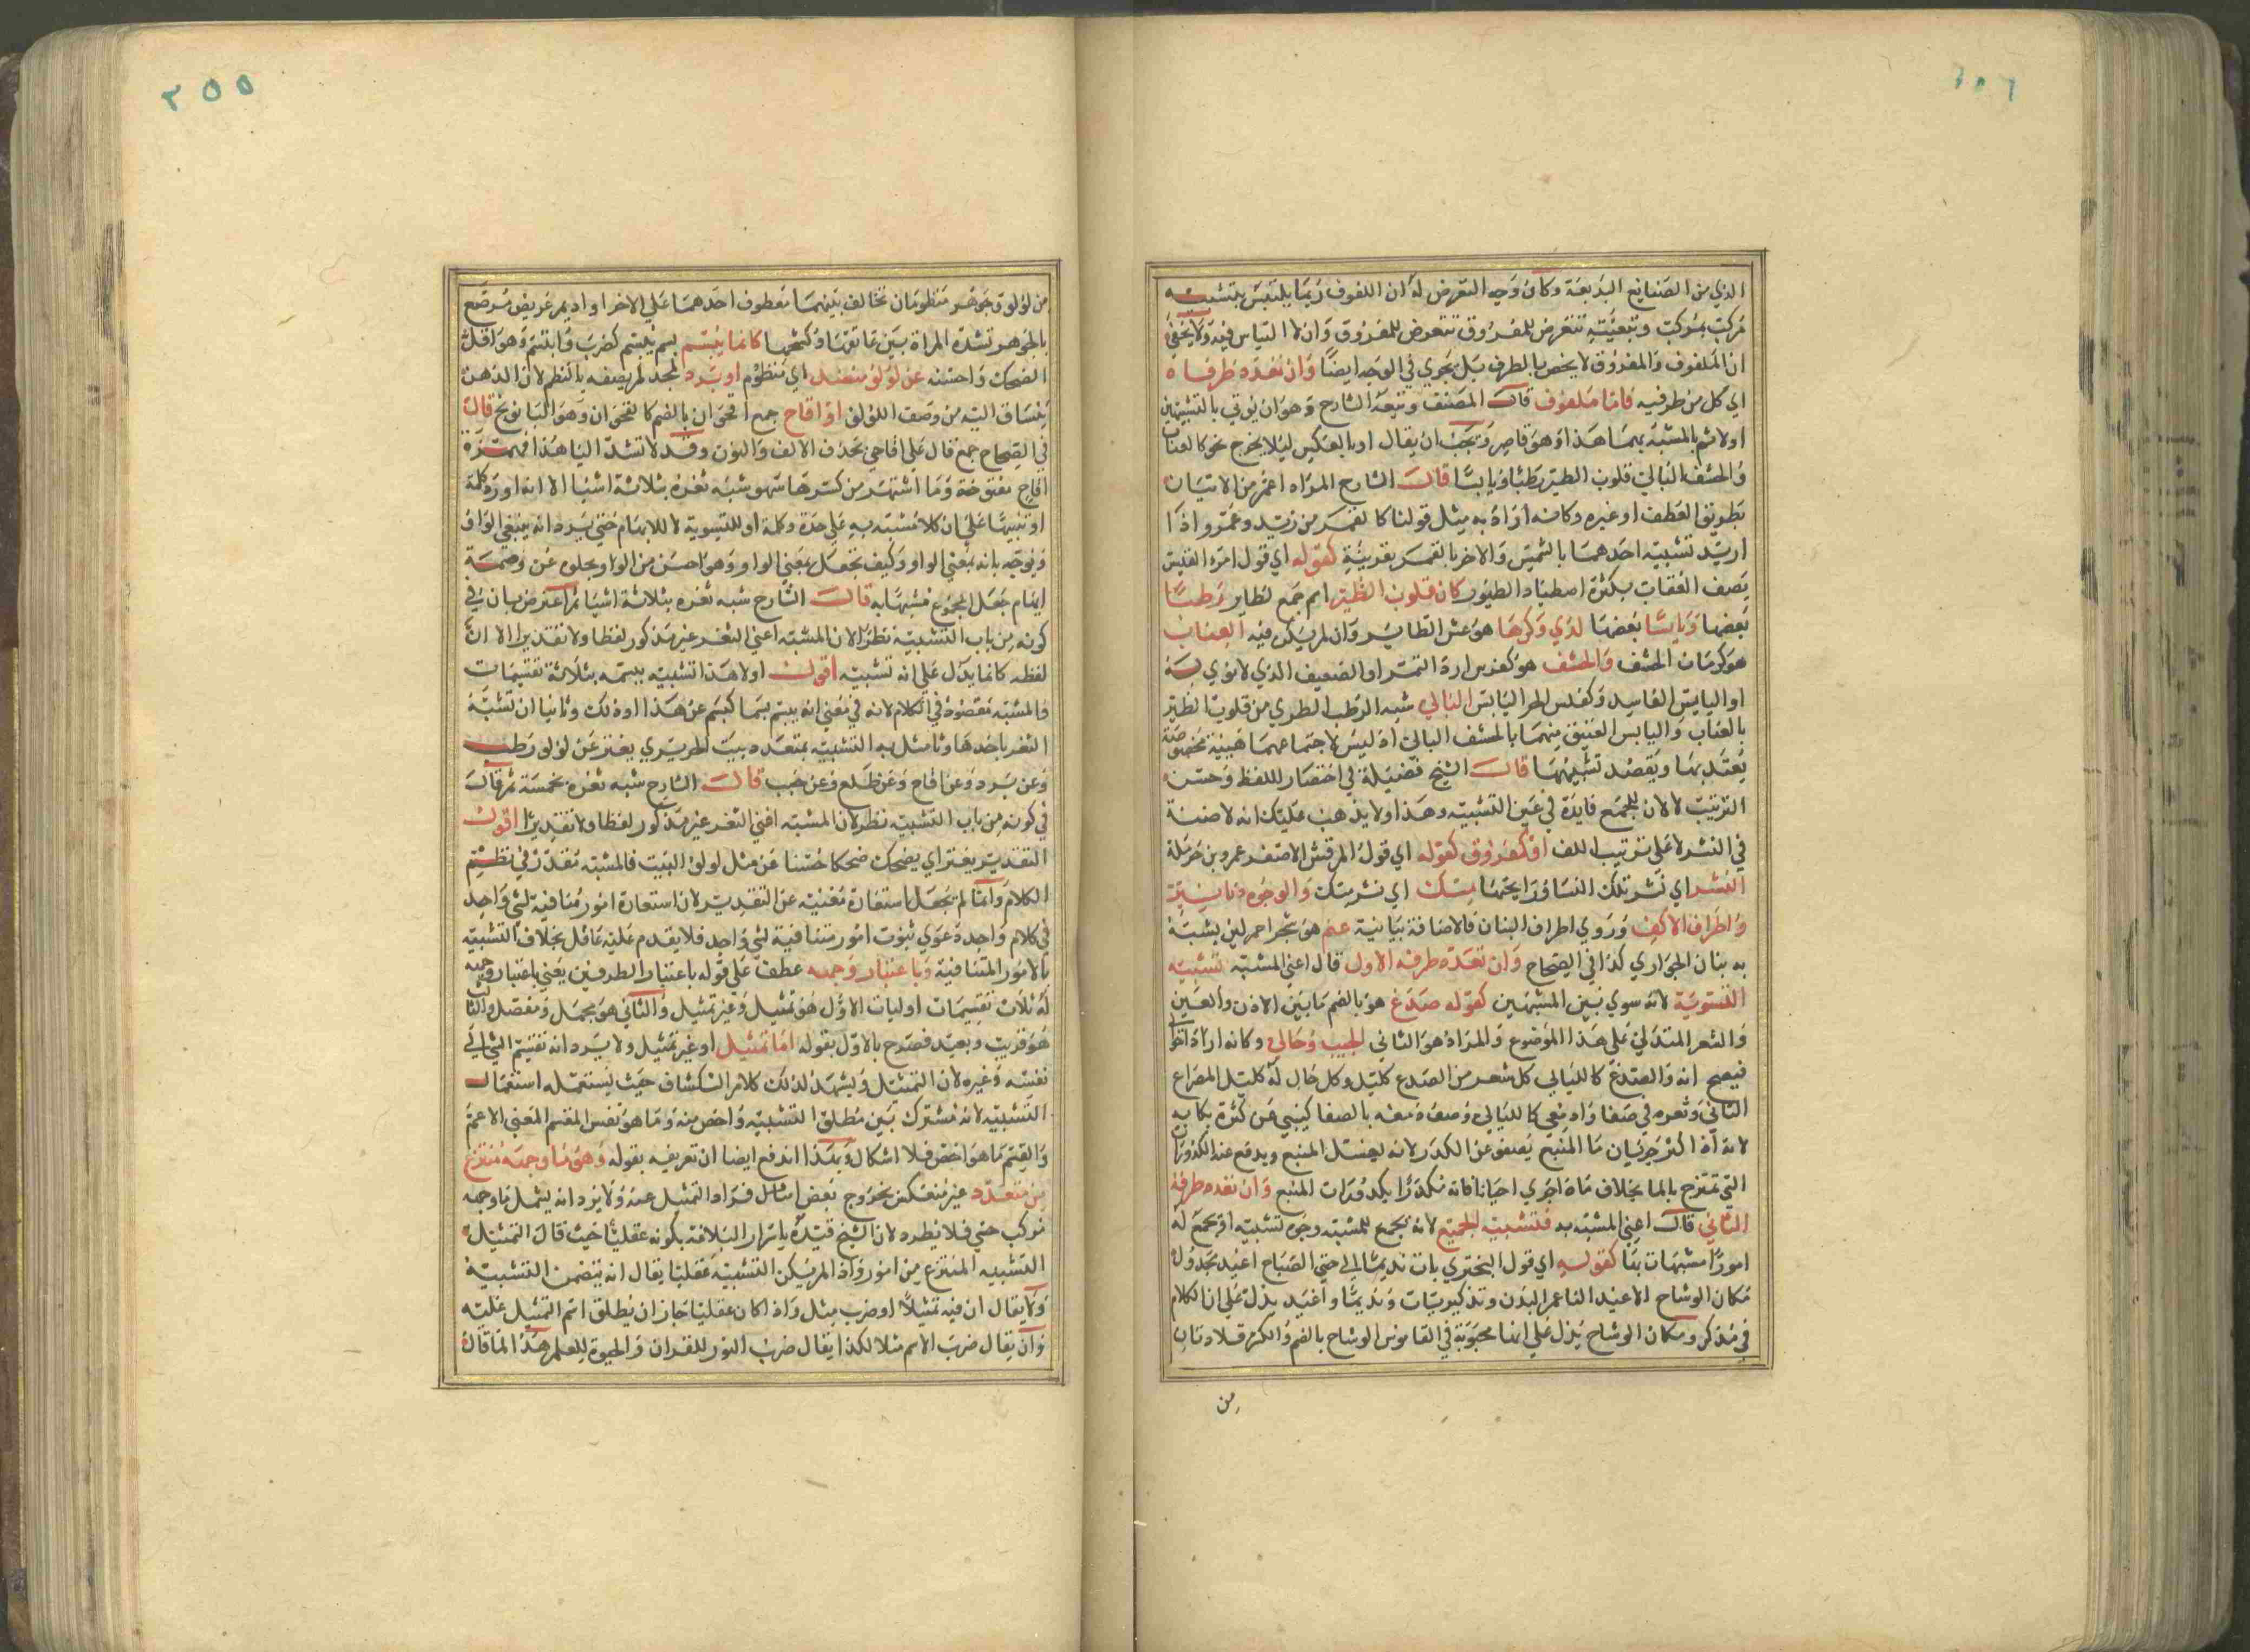 الذي من الصنايع البديعة وكان وجه التعرض له ان اللفوف ربما يلتبس بتشبيه
مركب بمركب وبتبعيته تتعرض للمفروق وان لا التباس فيه ولا يخفى
ان الملفوف والمفروق لا يخص بالطرف بل يجري في الوجه ايضا وان تعدد طرفاه
اي كل من طرفيه فاما ملفوف قال المصنف وتبعه الشارح وهو ان يؤتي بالتشبيهين
اولا ثم بالمشبه بهما هذا وهو قاصر ويجب ان يقال او بالعكس ليلا يخرج نحو كالعناب
والحشف البالي قلوب الطير رطبا ويابسا قال الشارح المراد اعم من الاتيان
بطريق العطف او غيره وكانه اراد به مثل قولنا كالقمرين زيد وعمرو اذا
اريد تشبيه احدهما بالشمس والاخر بالقمر بقرينة كقوله اي قول امرء القيس
يصف العقاب بكثرة اصطياد الطيور كان قلوب الطير اسم جمع لطاير رطبا
بعضها ويابسا بعضها لدي وكرها هو عش الطاير وان لم يكن فيه العناب
هو كرمان الحشف والحشف هو كفرس اردء التمر او الضعيف الذي لا نوي له
او اليابس الفاسد وكفلس الحر اليابس البالي شبه الرطب الطري من قلوب الطير
بالعناب واليابس العتيق منهما بالحشف البالي اذ ليس لاجتماعهما هيئة مخصوصة
يعتد بها ويقصد تشبيهها قال الشيخ فضيلة في اختصار اللفظ وحسن
الترتيب لا لان للجمع فايدة في عين التشبيه وهذا ولا يذهب عليك انه لا صنعة
في النشر لا على ترتيب اللف او مفروق كقوله اي قول المرقش الاصغر عمرو بن حرملة
النشر اي نشر تلك النساء ورايحتها مسك اي نشر مسك والوجوه دنانير
واطراف الاكف وروي اطراف البنان فالاضافة بيانية عنم هو شجر احمر لين يشبه
به بنان الجواري كذا في الصحاح وان تعدد طرفه الاول قال اعني المشبه تشبيه
التسوية لانه سوي بين المشبهين كقوله صدغ هو بالضم ما بين الاذن والعين
والشعر المتدلي على هذا الموضوع والمراد هو الثاني الحبيب وحالي وكانه اراد انها
فيصح انه والصدغ كالليالي كل شعر من الصدغ كليل وكل حال له كليل المصراع
الثاني وثغره في صفا وادمعي كاللئالي وصف دمعه بالصفا كيني عن كثرة بكايه
لانه اذا كثر جريان ما المنبع يصفو عن الكدر لانه يغسل المنبع ويدفع عنه الكدورات
التي تمتزج بالما بخلاف ماء اجري احيانا فانه مكدرا بكدورات المنبع وان تعدد طرفه
الثاني قال اعني المشبه به فتشبيه الجمع لانه يجمع للمشبه وجوه تشبيه او يجمع له
امورا مشبهات بها كقوله اي قول البحتري بات نديما لي حتى الصباح اغيد مجدول
مكان الوشاح الاغيد الناعم البدن وتذكير بات ونديما واغيد يدل على ان الكلام
في مذكر ومكان الوشاح يدل على انها محبوبة في القاموس الوشاح بالضم والكسر قلادتان
من
من لؤلؤ وجوهر منظومان تخالف بينهما معطوف احدهما على الاخر او اديم عريض مرصع
بالجوهر تشده المراة بين عاتقها وكشحها كانما يبسم بسم يبسم كضرب وابتسم وهو اقل
الضحك واحسنه عن لؤلؤ منضد اي منظوم او برد لمجد لم يصفه بالنظم لان الذهن
ينساق اليه من وصف اللؤلؤ او اقاح جمع اقحوان بالضم كالقحوان وهو البابونج قال
في الصحاح جمع قال على اقاحي بحذف الالف والنون وقد لا تشد اليا هذا فهمزة
اقاح مفتوحة وما اشتهر من كسرها سهو شبه ثغره بثلاثة اشيا الا انه اورد كلمة
او تنبيها على ان كلا مشبه به على حدة وكلمة او للتسوية لا للابهام حتى يرد انه ينبغي الواو
ويوجه بانه بمعنى الواو وكيف تجعل بمعنى الواو وهو احسن من الواو ويخلو عن وصمة
ايهام جعل المجموع مشبها به قال الشارح شبه ثغره بثلاثة اشيا ثم اعترض بان في
كونه من باب التشبيه نظرا لان المشبه اعني الثغر غير مذكور لفظا ولا تقديرا الا ان
لفظه كانما يدل على انه تشبيه اقول اولا هذا تشبيه ببسمه بثلاثة تقسيمات
فالمشبه مقصود في الكلام لانه في معنى انه يبسم بسما كبسم عن هذا او ذلك وثانيا ان تشبه
الثغر باحدها وثا مثل به التشبيه بمتعدد بيت الحريري يفتر عن لؤلؤ رطب
وعن برد وعن اقاح وعن طلع وعن حبب قال الشارح شبه ثغره بخمسة ثم قال
في كونه من باب التشبيه نظر لان المشبه اعني الثغر غير مذكور لفظا ولا تقديرا اقول
التقدير يفتر اي يضحك ضحكا حسنا عن مثل لولؤ البيت فالمشبه مقدر في نظم
الكلام وانما لم يجعل استعارة مغنيه عن التقدير لان استعارة امور متنافية لشئ واحد
في كلام واحد دعوي ثبوت امور متنافية لشئ واحد فلا يقدم عليه عاقل بخلاف التشبيه
بالامور المتنافية وباعتبار وجهه عطف على قوله باعتبار الطرفين يعني باعتبار وجهه
له ثلاث تقسيمات اوليات الاول هو تمثيل وغير تمثيل والثاني هو مجمل ومفصل والثالث
هو قريب وبعيد فصرح بالاول بقوله اما تمثيل او غير تمثيل ولا يرد انه تقسيم الشئ الى
نفسه وغيره لان التمثيل ويشهد لذلك كلام الكشاف حيث يستعمله استعمال
التشبيه لانه مشترك بين مطلق التشبيه واخص منه وما هو نفس المقسم المعنى الاعم
والقسم ما هو اخص فلا اشكال وبهذا اندفع ايضا ان تعريفه بقوله وهو ما وجهه منتزع
من متعدد غير منعكس بخروج بعض امثال فراد التمثيل عنه ولا يرد انه يشمل ما وجهه
مركب حسي فلا يطرد لان الشيخ قيده باسرار البلاغة بكونه عقليا حيث قال التمثيل
التشبيه المنتزع من امور واذا لم يكن التشبيه عقليا يقال انه يتضمن التشبيه
ولا يقال ان فيه تمثيلا او ضرب مثل واذا كان عقليا جاز ان يطلق اسم التمثيل عليه
وان يقال ضرب الاسم مثلا لكذا يقال ضرب النور للقران والحيوة للعلم هذا لما قاله